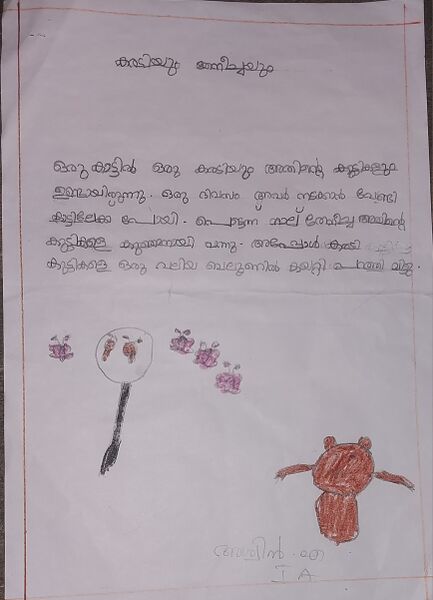 കരടിയും തേനീച്ചയും
ഒരു കാട്ടിൽ ഒരു കരടിയും അതിന്റെ കുട്ടികളും
ഉണ്ടായിരുന്നു. ഒരു ദിവസം അവർ നടക്കാൻ വേണ്ടി
കാട്ടിലേക്ക് പോയി. പെട്ടെന്ന് നാല് തേനീച്ച അതിന്റെ
കുട്ടികളെ കുത്താനായി വന്നു. അപ്പോൾ കരടി
കുട്ടികളെ ഒരു വലിയ ബലൂണിൽ കയറ്റി പറത്തി വിട്ടു.
I A